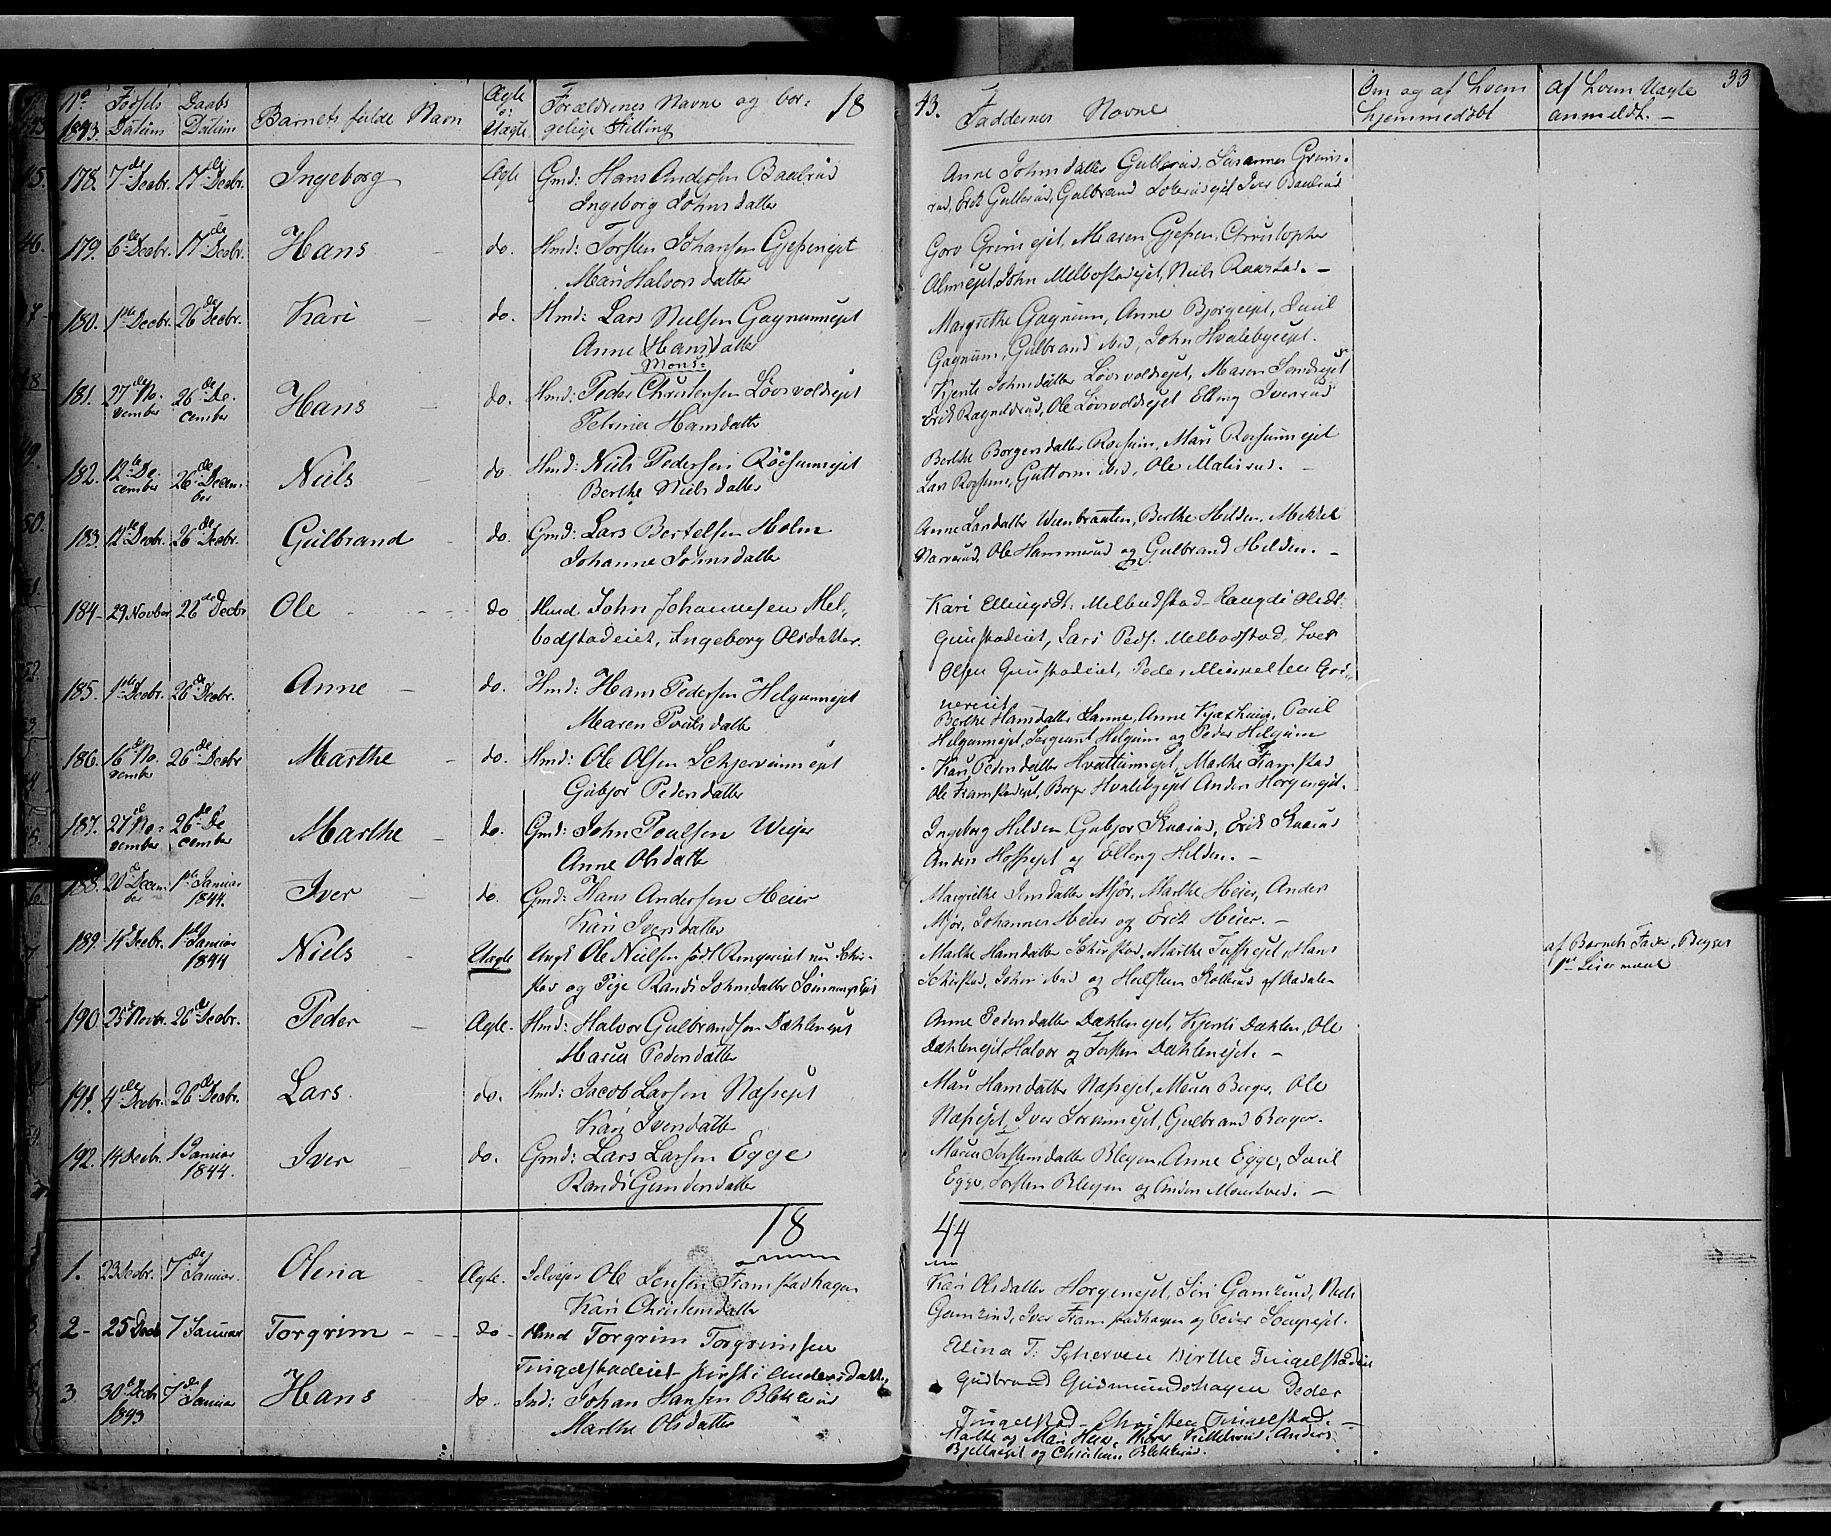 No 1843. Fødsels Datum Daabs Datum Barnets fulde Navn Ægte o: Uægte Forældrenes Navne og bor: 18
gelige Stilling
43. Faddernes Navne Om og af hvem hjemmedøbt af hvem Uægte anmeldt. 33
178. 7de Decbr. 17de Decbr. Ingeborg Ægte Gmd: Hans Andersen Baalsrud
Ingeborg Johnsdatter
Anne Johnsdatter Gullerud
rud, Erik Gullerud, Gulbrand Iver
179. 6te Decbr. 17de Decbr. Hans do. Hmd: Torsten Johansen
Mari Halvorsdatter
Goro Maren Christopher
John Melbostadejet, Niels Raastad.
180. 1ste Decbr. 26de Decbr. Kari do. Hmd: Lars Nielsen Gagnumejet
Anne (Hans)datter
Mons:
Margrethe Gagnum, Anne Bjørgeejet, Paul
Gagnum, Gulbrand ibid, John Hvalebyejet.
181. 27de November 26de December Hans do. Hmd: Peder Christensen Løvsvoldejet
Petrine Hansdatter
Kjersti Johnsdatter Løvsvoldejet, Maren
Erik Ole Løvsvoldejet Elling Iversrud
182. 12te December 26de December Niels do Hmd: Niels Pedersen Røesumejet
Berthe Nielsdatter
Berthe Borgersdatter Roesum, Mari Roesumejet
Lars Roesum, Guttorm ibid, Ole
183. 12te Decbr. 26de Decbr. Gulbrand do. Gmd: Lars Bertelsen Holm
Johanne Johnsdatter
Anne Larsdatter Berthe Helden, Mikkel
Ole Hammerud og Gulbrand Helden.
184 29 Novbr 26de Decbr Ole do Hmd. John Johannesen Mel,
bodstadeiet, Ingeborg Olsdatter.
Kari Ellingsdt: Melbudstad Rangdi Olsdt
Gunstadeiet, Lars Peds. Melbodstad, Iver
Olsen Gunstadeiet, Peder
185. 1ste Decbr. 26de Decbr. Anne do. Hmd: Hans Pedersen Helgumejet
Maren Poulsdatter
Berthe Hansdatter Anne Poul
Helgumejet, Sergeant Helgum og Peder Helgum
186. 16de November 26de Decbr Marthe do. Hmd: Ole Olsen
Gubjør Pedersdatter
Kari Pedersdatter Hvattumejet, Marthe Framstad
Ole Framstadejet, Borger Hvalebyejet Anders Horgenejet.
187. 27de November 26de December Marthe do. Gmd: John Poulsen
Anne Olsdatter
Ingeborg Helden, Gubjør Erik
Anders og Elling Helden.
188. 20de December 1ste Januar 1844. Iver do. Gmd: Hans Andersen Heier
Kari Iversdatter
Margrethe Mjør, Marthe Heier, Anders
Mjør, Johannes Heier og Erik Heier.
189. Decbr. 1ste Januar 1844 Niels Uægte Ungk Ole Nielsen født Ringeriget nu
og Pige Randi Johnsdatter
Marthe Hansdatter Marthe Hans
John ibid og af Aadalen
af Barnets Fader, Begges
1ste Leiermaal
190. 25 Novbr. 26de Decbr. Peder Ægte. Hmd: Halvor Gulbrandsen Dæhlenejet
Maria Pedersdatter
Anne Pedersdatter Dæhlenejet, Kjersti Dæhlen, Ole
Dæhlenejet Halvor og Torsten Dæhlenejet.
191. 4de Decbr. 26de Decbr. Lars do. Hmd: Jacob Larsen Næsejet
Kari Iversdatter
Mari Hansdatter Næsejet, Maria Berger, Ole
Næsejet, Iver Gulbrand Berger.
192. 14 Decbr. 1 Januar 1844. Iver do. Gmd: Lars Larsen Egge
Randi Gundersdatter
Maria Torstensdatter Bleyen, Anne Egge, Paul
Egge, Torsten Bleyen og Anders
18 44
1. 23 Decbr. 7de Januar. Olena Ægte. Selvejer Ole Jensen Framstadhagen
Kari Christensdatter
Kari Olsdatter Horgenejet, Siri Niels
Iver Framstadhagen og Peder
2 25 Decb 7 Januar Torgrim do Hmd Torgrim Torgrimsen
Tingelstadeiet Kirsti Andersdatter
Elina T. Birthe Tingelstadeie
Gudbrand Gudmundshagen Peder
Tingelstad Christen Tingelstad.
3. 30 Decbr 1843 7de Januar Hans do. Ind: Johan Hansen Blekkerud
Marthe Olsdatter
Marthe og Mari Anders
og Christian Blekkerud.